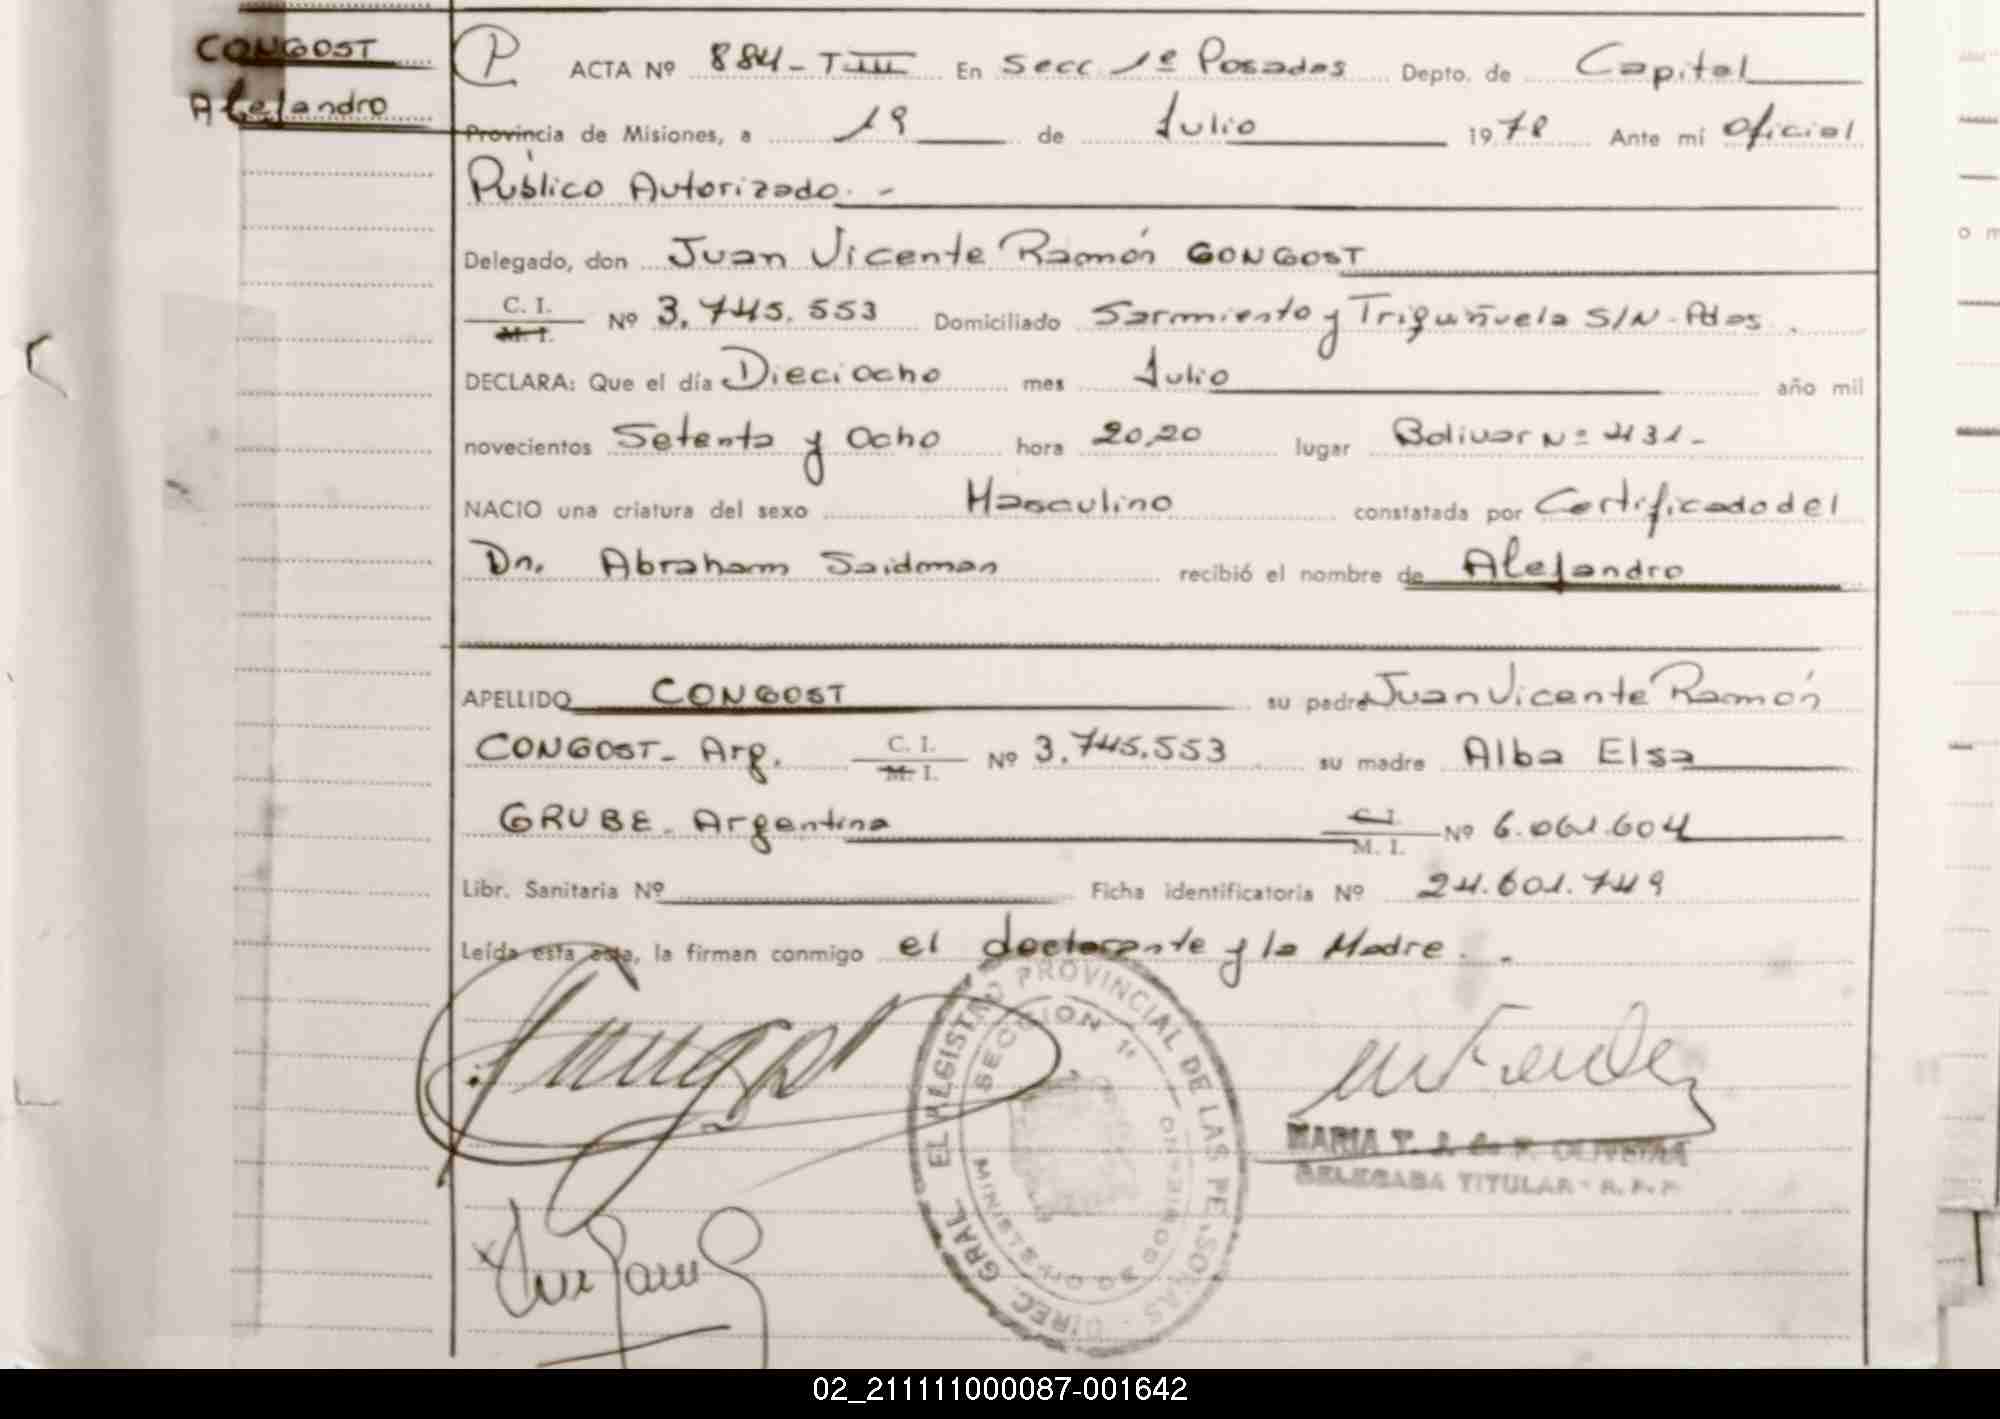 CONGOST
Alejandro
P ACTA Nº 884-TIII En Secc. 1º Posadas Depto. de Capital
Provincia de Misiones, a 19 de Julio 1978 Ante mí Oficial
Público Autorizado. -
Delegado, don Juan Vicente Ramón CONGOST
C. I.
M. I. Nº 3.745.553 Domiciliado Sarmiento y Triguñuela S/N - Pdas.
DECLARA: Que el día Dieciocho mes Julio año mil
novecientos Setenta y Ocho hora 20,20 lugar Bolivar Nº 431-
NACIO una criatura del sexo Masculino constatada por Certificado del
Dn. Abraham Saidman recibió el nombre de Alejandro
APELLIDO CONGOST su padre Juan Vicente Ramón
CONGOST- Arg. C. I. M. I. Nº 3.745.553 su madre Alba Elsa
GRUBE. Argentina C. I. M. I. Nº 6.061.604
Libr. Sanitaria Nº Ficha identificatoria Nº 24.601.749
Leída esta acta, la firman conmigo el doctarante y la Madre. -
DIREC. GRAL. EL REGISTRO PROVINCIAL DE LAS PERSONAS
SECCION 1ª
MINISTERIO DE GOBIERNO
MARIA T. OLIVEIRA
DELEGADA TITULAR - R. P. P.
02_211111000087-001642